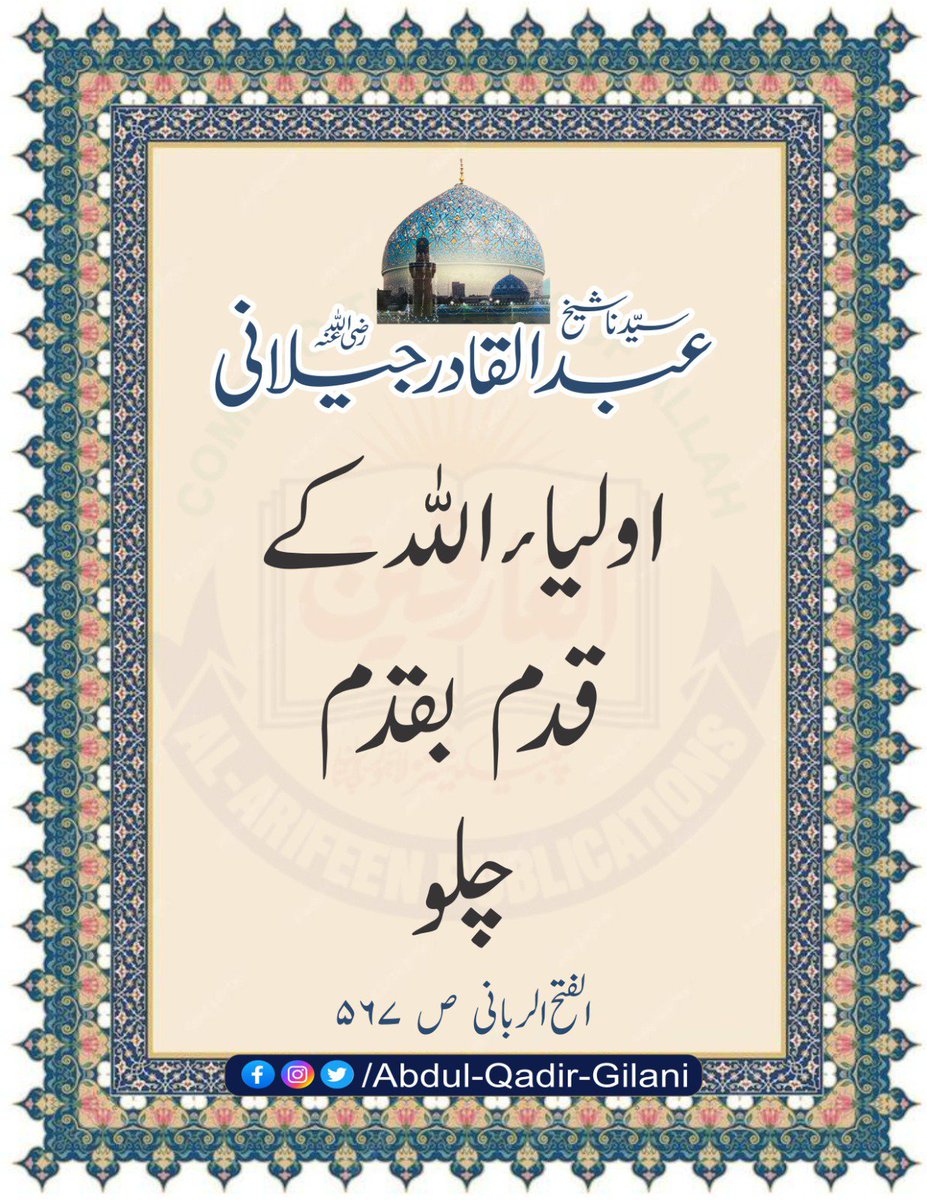 سیّدنا شیخ
عبدالقادر جیلانی رضی اللہ عنہ
اولیاء اللہ کے
قدم بقدم
چلو
الفتح الربانی ص ۵۶۷
/Abdul-Qadir-Gilani
العارفین
AL-ARIFEEN PUBLICATIONS